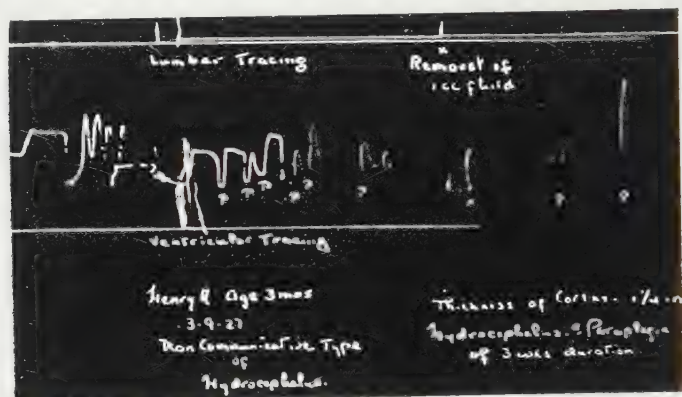 Lumbar Tracing
x
Removal of
1 cc fluid
P P P P P P P P
Ventricular Tracing
Henry R Age 3 mos
3-9-27
Non Communicative Type
of
Hydrocephalus.
Thickness of Cortex. 1/4 in
Hydrocephalus. & Paraplegia
of 3 wks duration